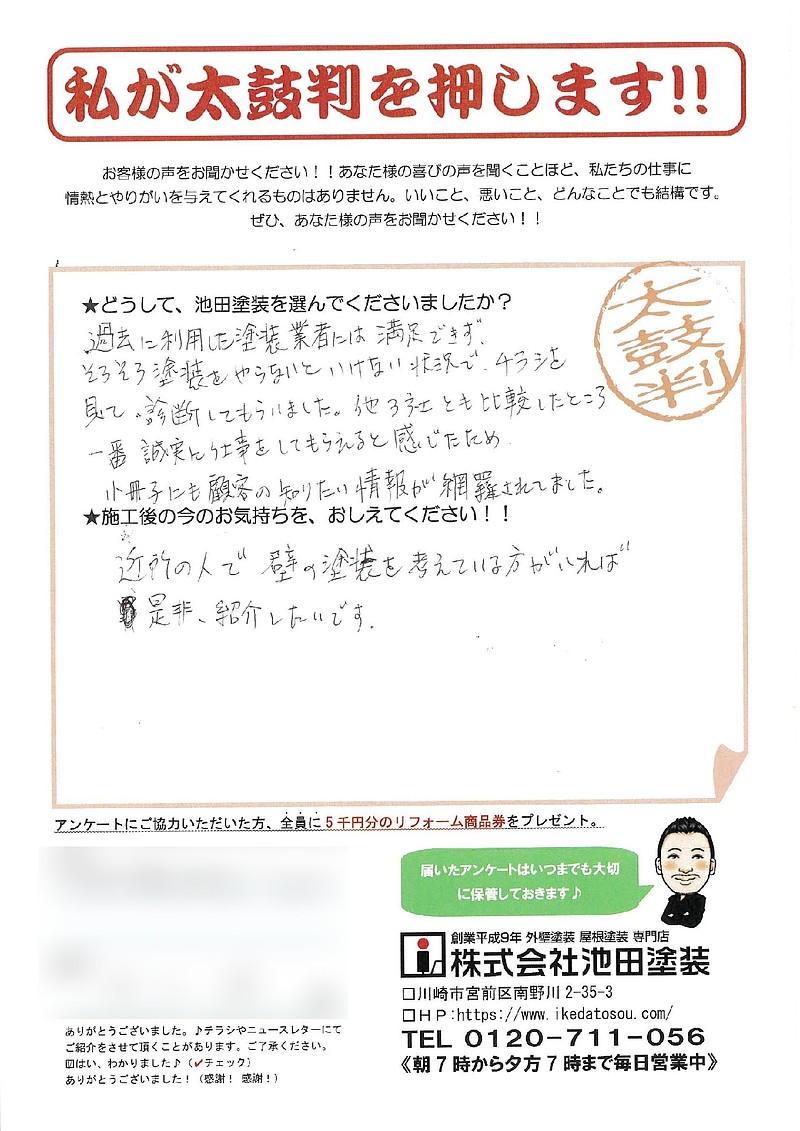 私が太鼓判を押します!!
お客様の声をお聞かせください！！あなた様の喜びの声を聞くことほど、私たちの仕事に
情熱とやりがいを与えてくれるものはありません。いいこと、悪いこと、どんなことでも結構です。
ぜひ、あなた様の声をお聞かせください！！
★どうして、池田塗装を選んでくださいましたか？
太鼓判
過去に利用した塗装業者には満足できず、
そろそろ塗装をやらないといけない状況で、チラシを
見て、診断してもらいました。他3社とも比較したところ
一番誠実に仕事をしてもらえると感じたため。
小冊子にも顧客の知りたい情報が網羅されてました。
★施工後の今のお気持ちを、おしえてください！！
近所の人で壁の塗装を考えている方がいれば
是非、紹介したいです。
アンケートにご協力いただいた方、全員に５千円分のリフォーム商品券をプレゼント。
届いたアンケートはいつまでも大切
に保養しておきます♪
創業平成9年 外壁塗装 屋根塗装 専門店
株式会社池田塗装
□川崎市宮前区南野川 2-35-3
□ＨＰ:https://www.ikedatosou.com/
TEL 0120-711-056
《朝７時から夕方７時まで毎日営業中》
ありがとうございました。♪チラシやニュースレターにて
ご紹介をさせて頂くことがあります。ご了承ください。
☑はい、わかりました♪（✓チェック）
ありがとうございました！（感謝！ 感謝！）